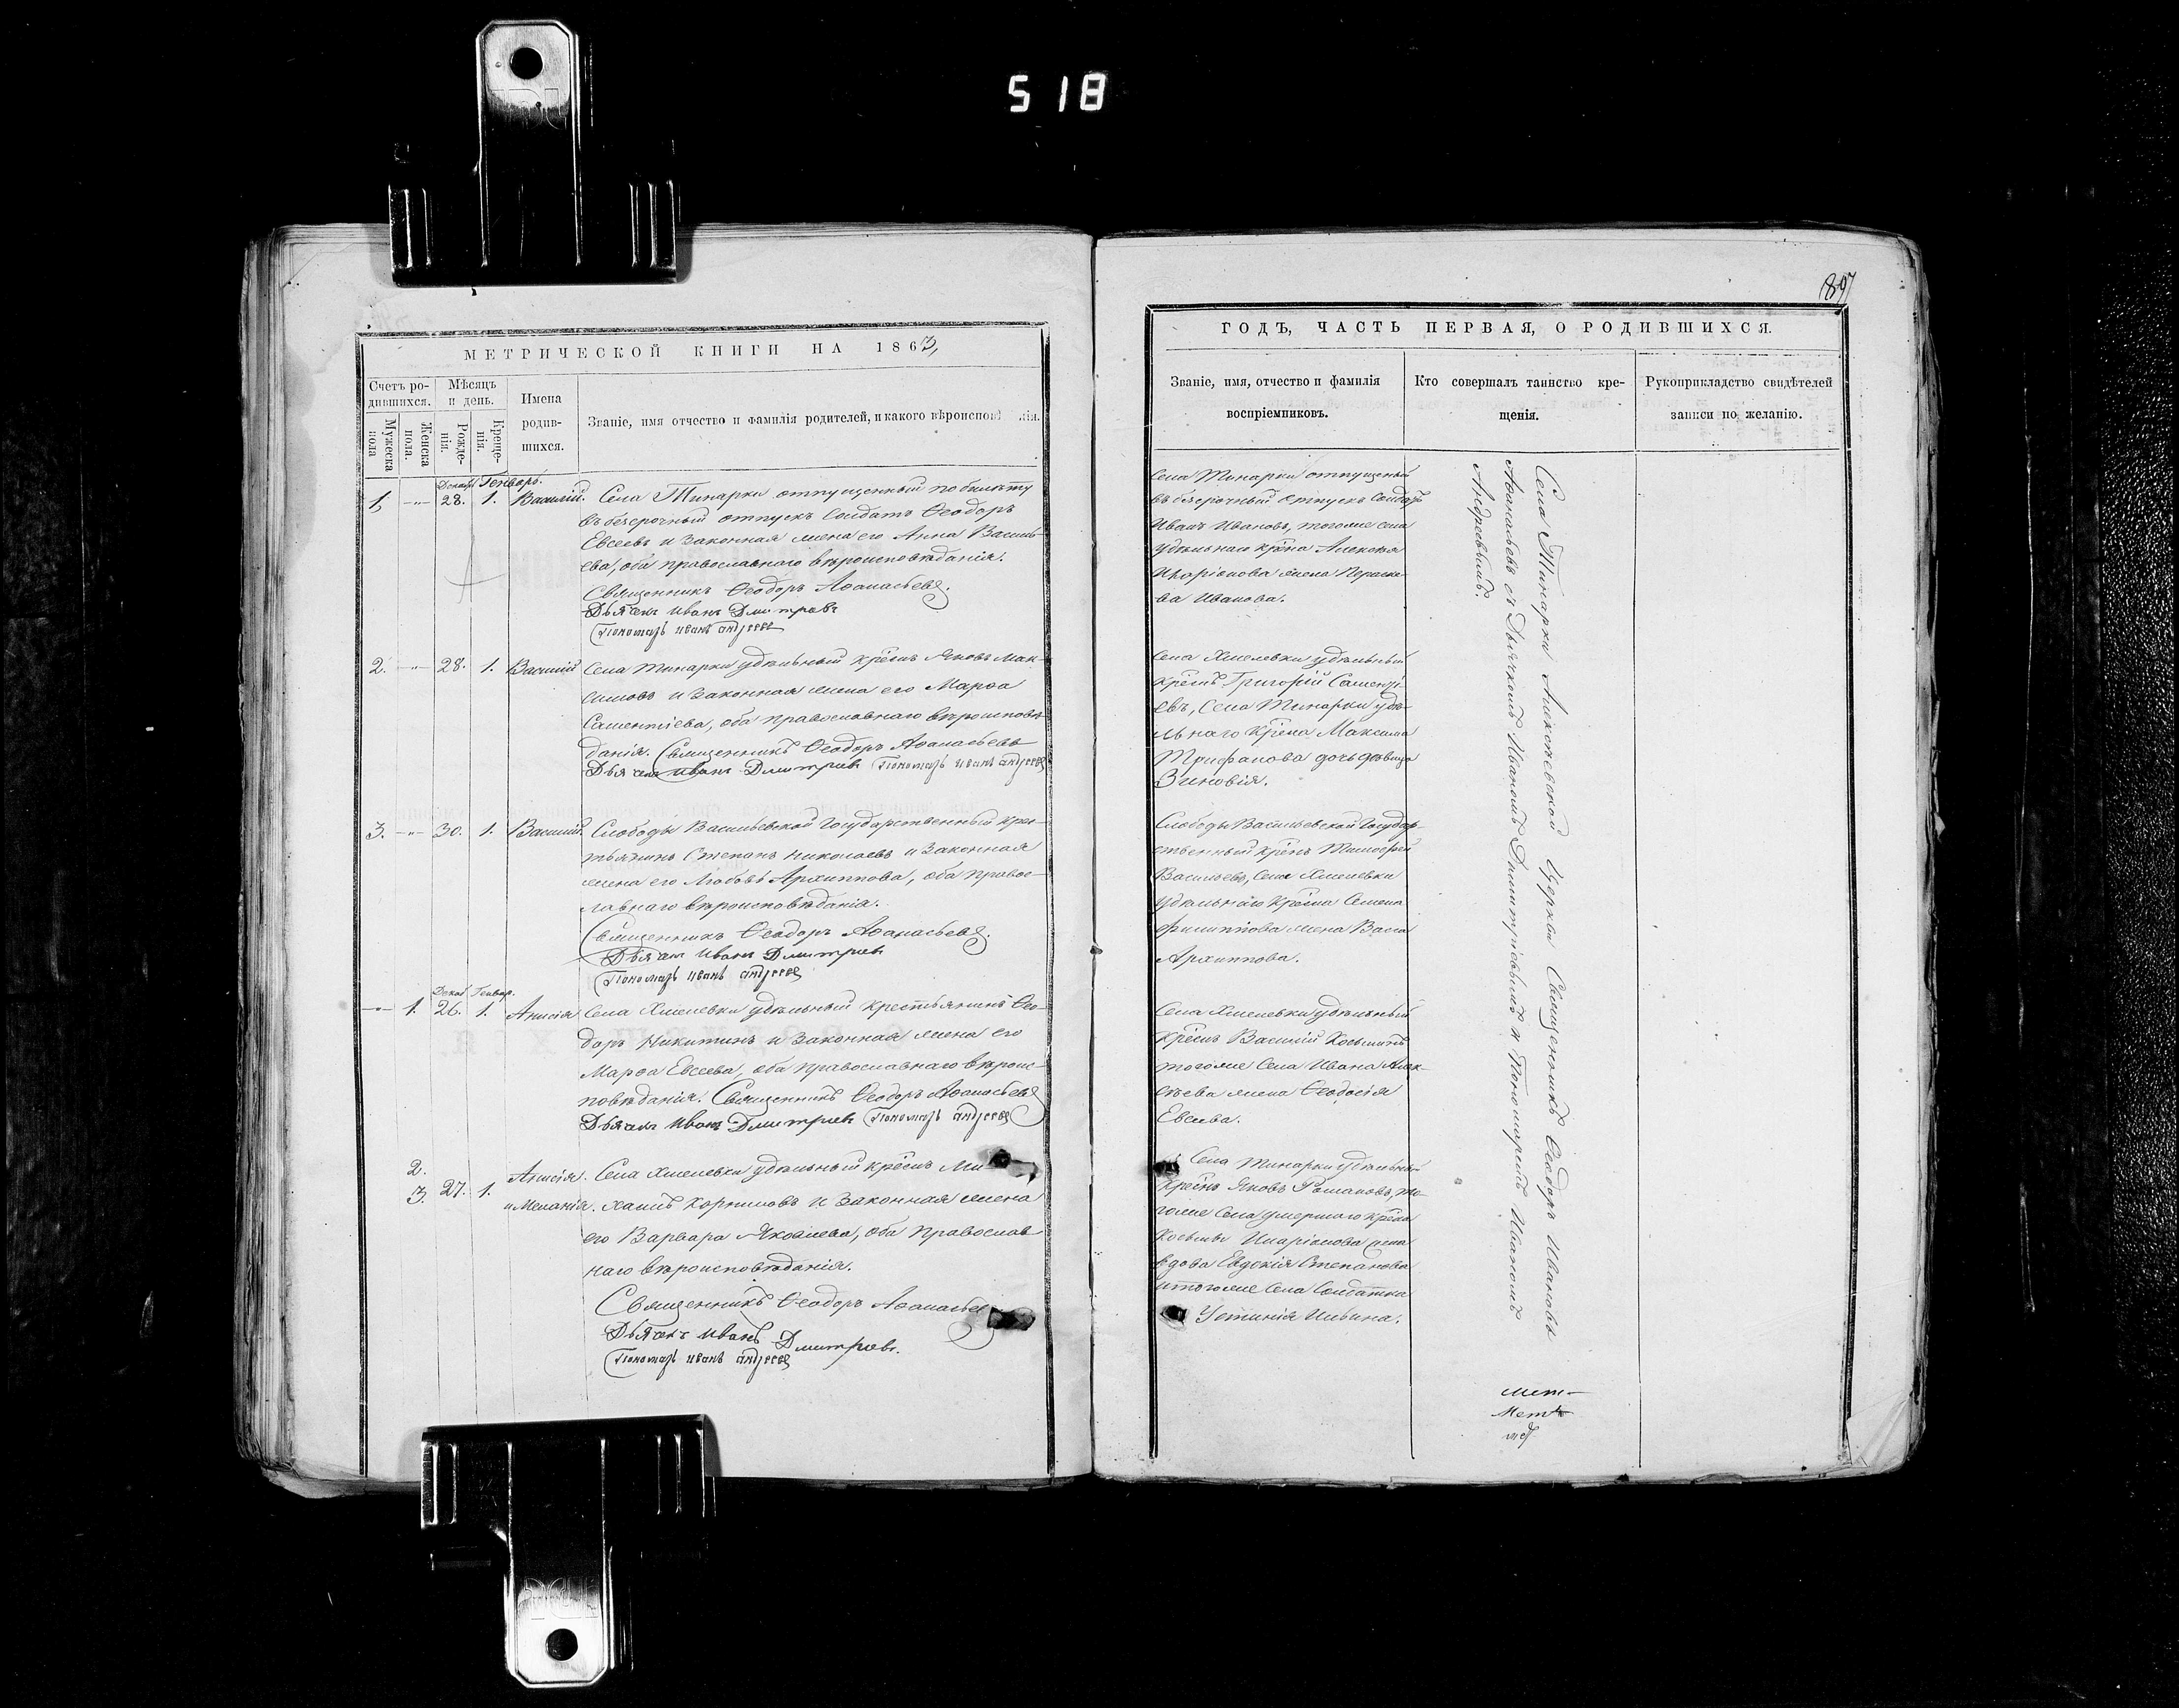 518
МЕТРИЧЕСКОЙ КНИГИ НА 1863,
Счетъ ро-
дившихся.
Мужеска
пола
Женска
пола.
Мѣсяцъ
и день.
Рожде-
нія.
Креще-
нія.
Имена
родив-
шихся.
Званіе, имя отчество и фамилія родителей, и какого вѣроиспов нія.
Декабр Генварь.
1 -"- 28. 1. Василій. Села Тинарки отпущенный по билету
въ безсрочный отпускъ Солдатъ Ѳеодоръ
Евсеевъ и Законная жена его Анна Василь-
ева, оба православнаго вѣроисповѣданія.
Священникъ Ѳеодоръ Аѳанасьевъ.
Дьячекъ Иванъ Дмитревъ
Пономарь Иванъ Андреевъ
2. -"- 28. 1. Василій Села Тинарки удѣльный крѣснъ Яковъ Мак-
симовъ и Законная жена его Марѳа
Саментіева, оба православнаго вѣроисповѣ-
данія. Священникъ Ѳеодоръ Аѳанасьевъ
Дьячекъ Иванъ Дмитриевъ Пономарь Иванъ Андреевъ
3. -"- 30. 1. Василій. Слободы Васильевской Государственный крес-
тьянинъ Степанъ Николаевъ и Законная
жена его Любовь Архиппова, оба правос-
лавнаго вѣроисповѣданія.
Священникъ Ѳеодоръ Аѳанасьевъ.
Дьячекъ Иванъ Дмитриевъ
Пономарь Иванъ Андреевъ
Декаб Генвар.
-"- 1. 26. 1. Анисія Села Хмелевки удѣльный крестьянинъ Ѳео-
доръ Никитинъ и Законная жена его
Марѳа Евсеева, оба православнаго вѣроис-
повѣданія. Священникъ Ѳеодоръ Аѳанасьевъ
Дьячекъ Иванъ Дмитриевъ Пономарь Андреевъ
2. Анисія. Села Хмелевки удѣльный крѣснъ Ми
3. 27. 1. и Меланія. хаилъ Корниловъ и Законная жена
его Варвара Яковлева, оба Православ
наго вѣроисповѣданія.
Священникъ Ѳеодоръ Аѳанасье
Дьячекъ Иванъ Дмитриевъ.
Пономарь Иванъ Андреевъ
897
ГОДЪ, ЧАСТЬ ПЕРВАЯ, О РОДИВШИХСЯ.
Званіе, имя, отчество и фамилія
воспріемниковъ.
Кто совершалъ таинство кре-
щенія.
Рукоприкладство свидѣтелей
записи по желанію.
Села Тинарки отпущеный
въ безсрочный Отпускъ Солдатъ
Иванъ Ивановъ, тогоже села
удѣльнаго крѣсна Алексѣя
Иларіонова жена Параске-
ва Иванова.
Села Хмелевки удѣльный
крѣснъ Григорій Саменті-
евъ, Села Тинарки удѣ-
льнаго крѣсна Максима
Трифанова дочь дѣвица
Зиновія.
Слободы Васильевской Государ-
ственный крѣснъ Тимоѳей
Васильевъ, Села Хмелевки
удѣльнаго крѣсна Семена
Филиппова жена Васса
Архиппова.
Села Хмелевки удѣльный
крѣснъ Василій Косьминъ
тогоже Села Ивана Алек-
сѣева жена Ѳеодосія
Евсеева.
Села Тинарки удѣльный
крѣснъ Яковъ Романовъ, то-
гоже Села умершаго крѣсна
Косьмы Иларіонова жена
вдова Евдокія Степанова
и тогоже Села Солдатка
Устинія Ильина.
Села Тинарки Алексѣевской Церкви Священникъ Ѳеодоръ Ивановъ
Аѳанасьевъ съ Дьячкомъ Иваномъ Димитріевымъ и Пономаремъ Иваномъ
Андреевымъ.